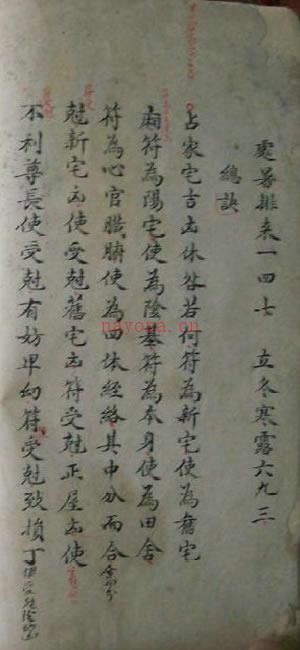 處暑排來一四七 立冬寒露六九三
總訣
占家宅吉凶休咎若何符為新宅使為舊宅
廂符為陽宅使為陰基符為本身使為田舍
符為心官臟腑使為四体經絡其中分而合
尅新宅凶使受尅舊宅凶符受尅正屋凶使
不利尊長使受尅有妨卑幼符受尅致損丁
nayona.cn